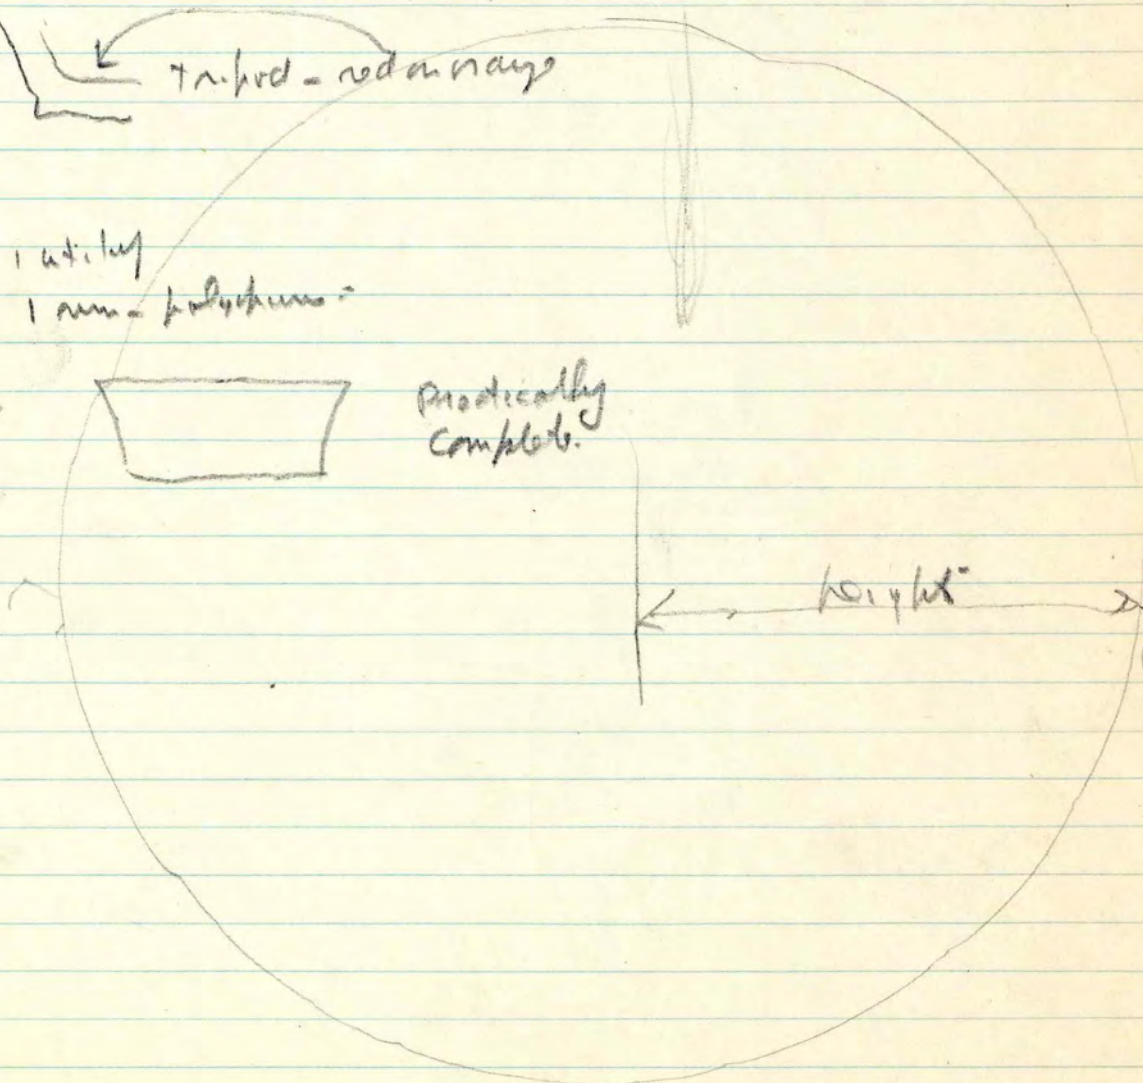 tripod - red on orange
1 utility
1 rim - polychrome -
Practically
complete.
height